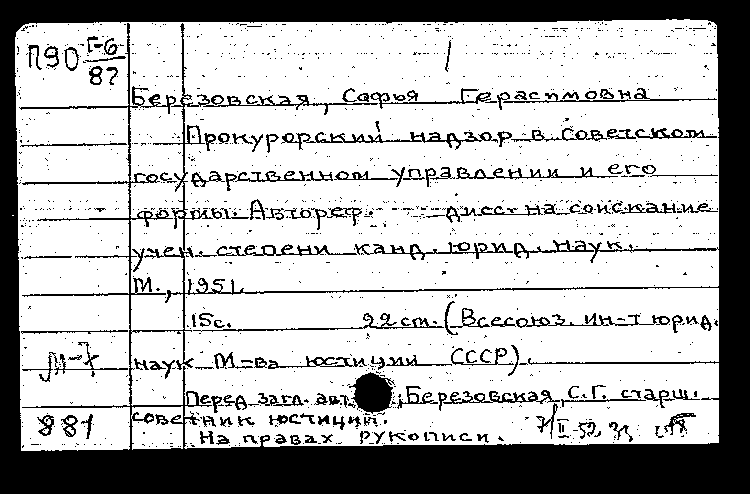 П90 Г-6
87
Березовская, Софья Герасимовна
Прокурорский надзор в советском
государственном управлении и его
формы. Автореф. дисс. на соискание
учен. степени канд. юрид. наук.
М., 1951.
15с. 22 см. (Всесоюз. ин-т юрид.
М-7 наук М-ва юстиции СССР).
Перед загл. авт.: Березовская, С.Г. старш.
881 советник юстиции.
На правах рукописи.